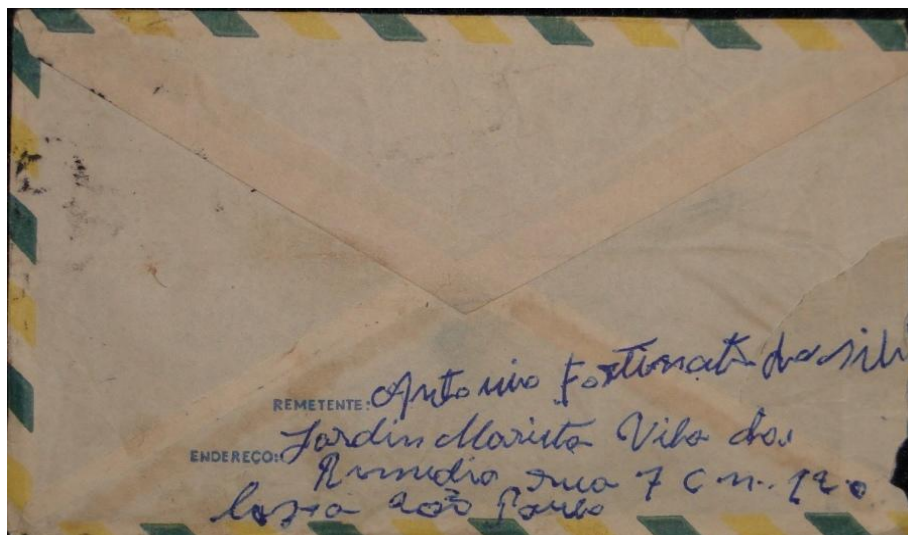 REMETENTE: Antonio Fortunato da silv
ENDEREÇO: Jardin Marista Vila dos
Remedio rua 7 C n. 120
São Paulo